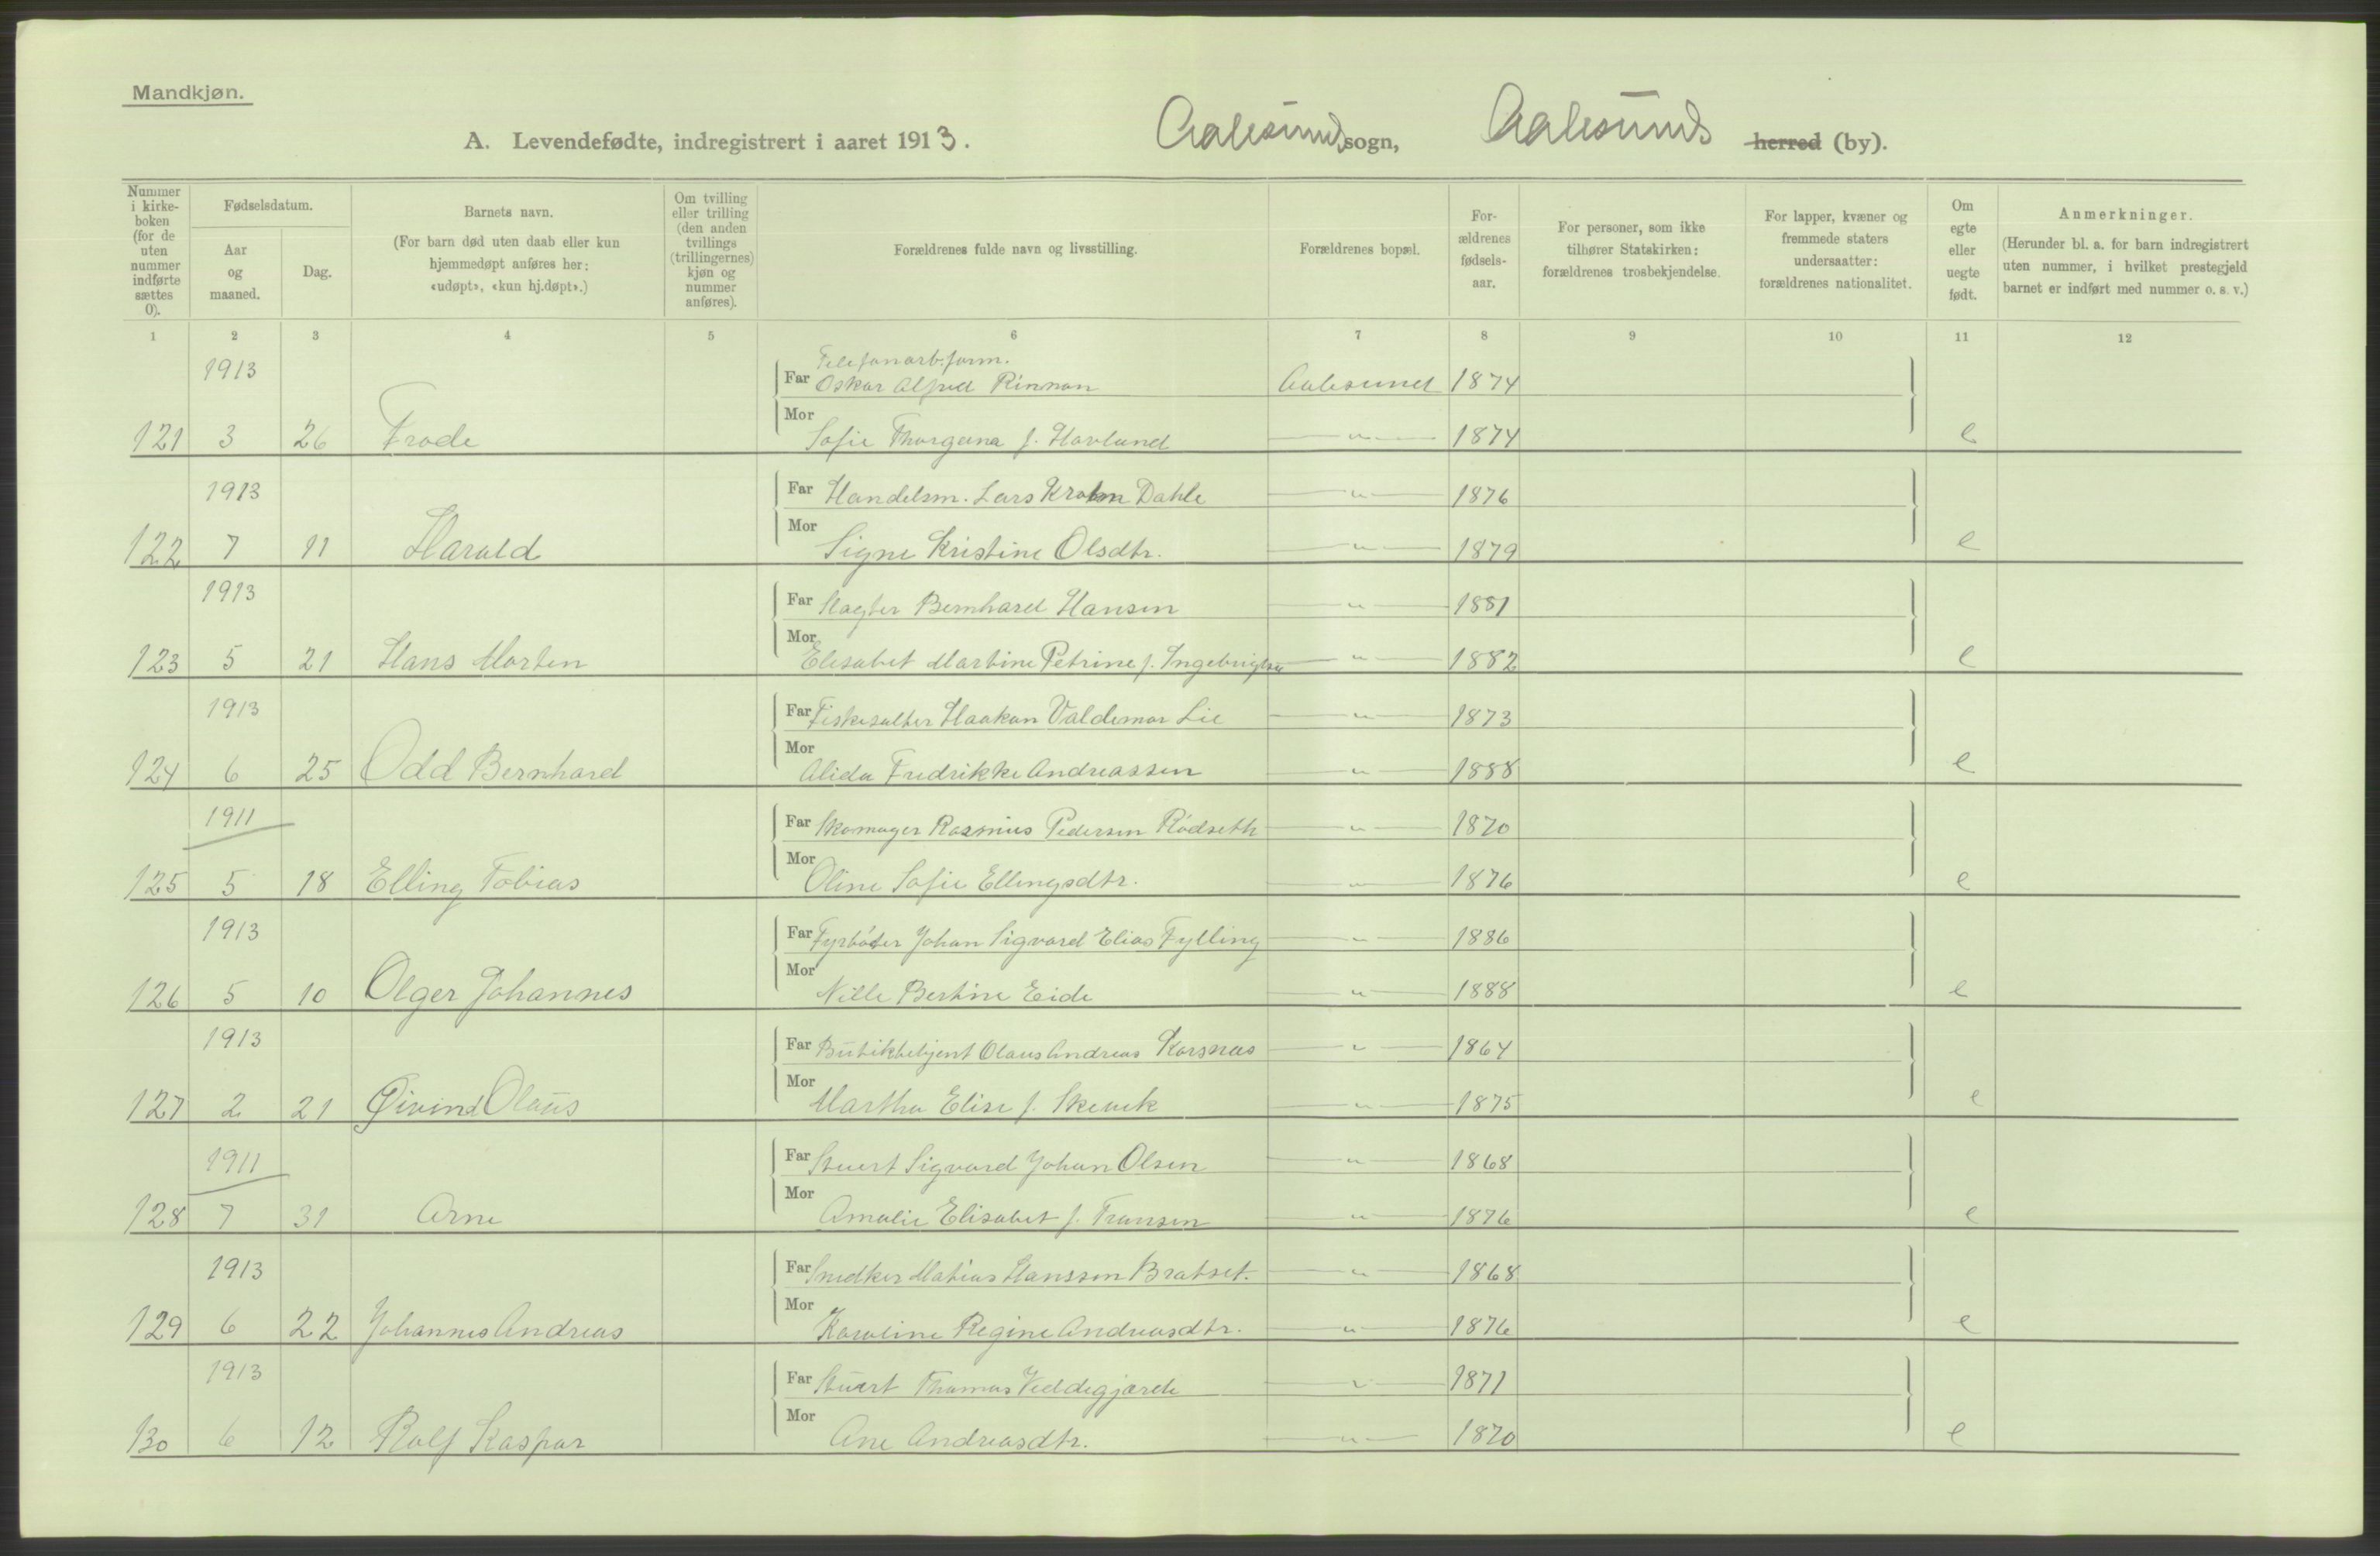 Mandkjøn.
A. Levendefødte, indregistrert i aaret 1913. Aalesunds sogn, Aalesunds herred (by).
Nummer i kirkeboken (for de uten nummer indførte sættes 0).
Fødselsdatum.
Aar og maaned.
Dag.
Barnets navn.
(For barn død uten daab eller kun hjemmedøpt anføres her: «udøpt», «kun hj.døpt».)
Om tvilling eller trilling (den anden tvillings (trillingernes) kjøn og nummer anføres).
Forældrenes fulde navn og livsstilling.
Forældrenes bopæl.
Forældrenes fødselsaar.
For personer, som ikke tilhører Statskirken: forældrenes trosbekjendelse.
For lapper, kvæner og fremmede staters undersaatter: forældrenes nationalitet.
Om egte eller uegte født.
Anmerkninger.
(Herunder bl. a. for barn indregistrert uten nummer, i hvilket prestegjeld barnet er indført med nummer o. s. v.)
1 2 3 4 5 6 7 8 9 10 11 12
Telefonarb.form.
1913 Far Oskar Alfred Rinnan Aalesund 1874
121 3 26 Frode Mor Sofie Thorgerna f. Hovlund — " — 1874 e
1913 Far Handelsm. Lars Krohn Dahle — " — 1876
122 7 11 Harald Mor Signe Kristine Olsdtr. — " — 1879 e
1913 Far Slagter Bernhard Hansen — " — 1881
123 5 21 Hans Morten Mor Elisabet Martine Petrine f. Ingebrigtsen — " — 1882 e
1913 Far Fiskesalter Haakon Valdemar Lie — " — 1873
124 6 25 Odd Bernhard Mor Alida Fredrikke Andreassen — " — 1888 e
1911 Far Skomager Rasmus Pedersen Rödseth — " — 1870
125 5 18 Elling Tobias Mor Oline Sofie Ellingsdtr. — " — 1876 e
1913 Far Fyrböter Johan Sigvard Elias Fylling — " — 1886
126 5 10 Olger Johannes Mor Nille Bertine Eide — " — 1888 e
1913 Far Butikbetjent Olaus Andreas Korsnes — " — 1864
127 2 21 Øivind Olaus Mor Martha Elise f. — " — 1875 e
1911 Far Stuert Sigvard Johan Olsen — " — 1868
128 7 31 Arne Mor Amalie Elisabet f. Fransen — " — 1876 e
1913 Far Snedker Matias Hanssen Bratset. — " — 1868
129 6 22 Johannes Andreas Mor Karoline Regine Andreasdtr. — " — 1876 e
1913 Far Stuert Thomas Veddegjærde — " — 1871
130 6 12 Rolf Kaspar Mor Ane Andreasdtr. — " — 1870 e